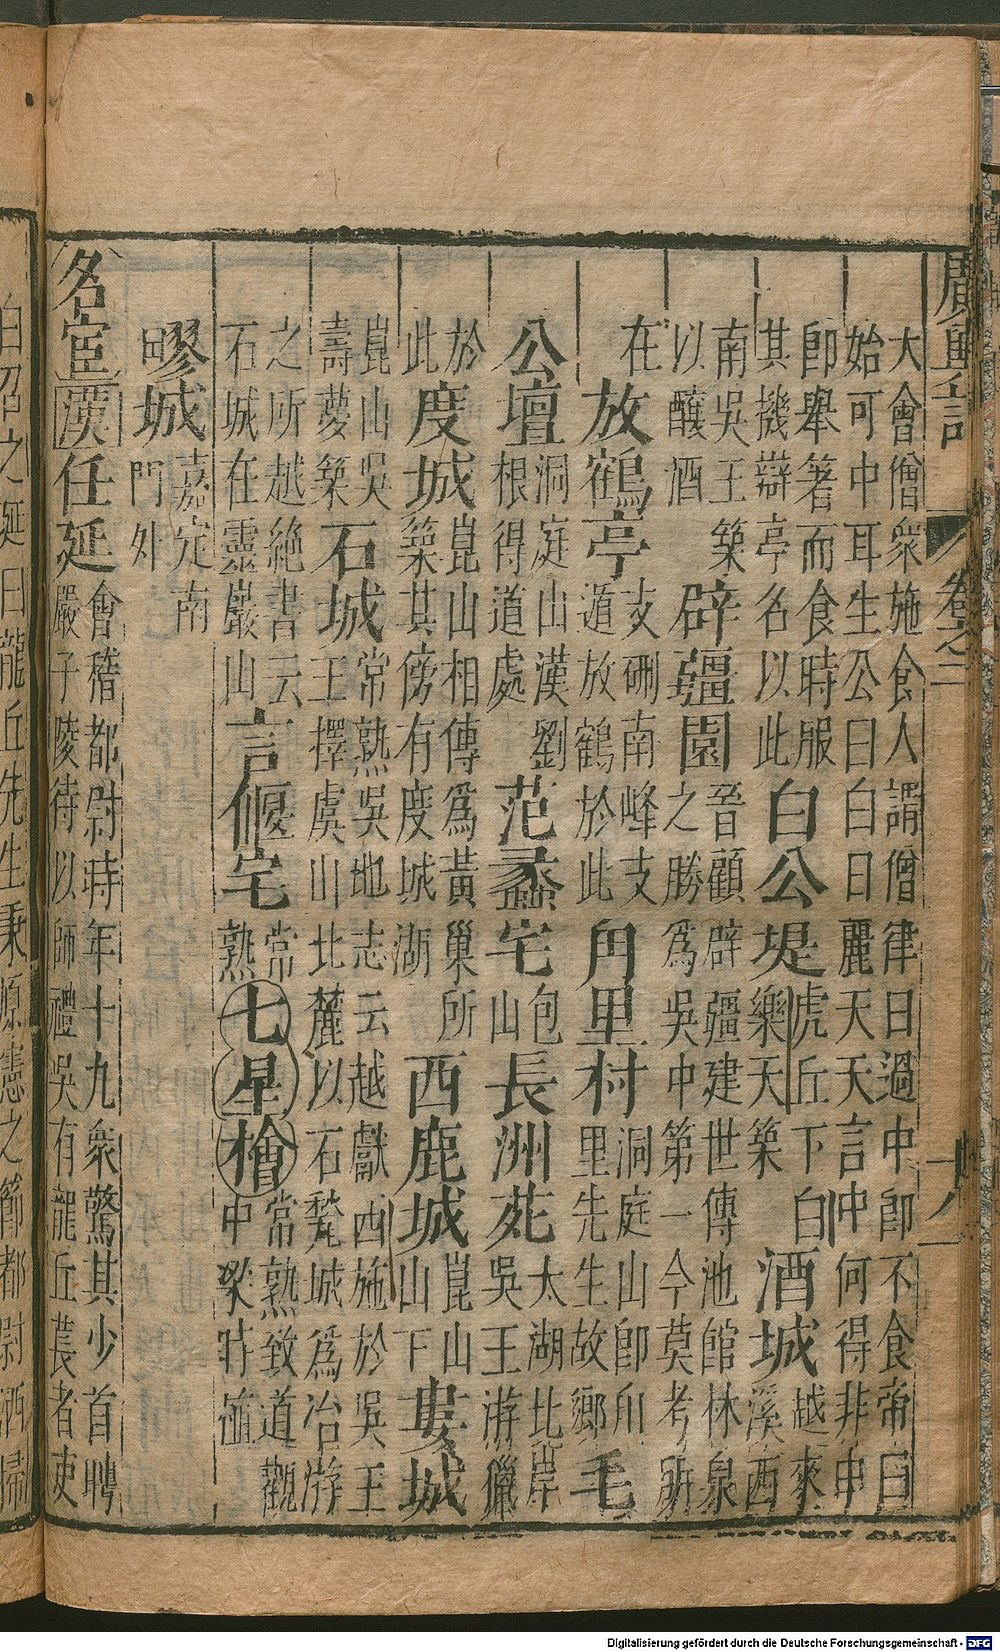 廣輿記 卷之二 十八
大會僧衆施食人謂僧律曰過中卽不食帝曰
始可中耳生公曰白日麗天天言中何得非中
卽舉箸而食時服
其機辯亭名以此
白公堤
虎丘下白
樂天築
酒城
越來
溪西
南吳王築
以釀酒
辟疆園
晉顧辟疆建世傳池館林泉
之勝爲吳中第一今莫考所
在
放鶴亭
支硎南峰支
遁放鶴於此
甪里村
洞庭山卽甪
里先生故鄉
毛
公壇
洞庭山漢劉
根得道處
范蠡宅
包
山
長洲苑
太湖北岸
吳王游獵
於
此
度城
崑山相傳爲黃巢所
築其傍有度城湖
西鹿城
崑山
山下
婁城
崑山吳
壽夢築
石城
常熟吳地志云越獻西施於吳王
王擇虞山北麓以石甃城爲冶游
之所越絕書云
石城在靈巖山
言偃宅
常
熟
七星檜
常熟致道觀
中梁時植
疁城
嘉定南
門外
名宦 漢 任延
會稽都尉時年十九衆驚其少首聘
嚴子陵待以師禮吳有龍丘萇者吏
白召之延曰龍丘先生秉原憲之節都尉洒掃
Digitalisierung gefördert durch die Deutsche Forschungsgemeinschaft - DFG